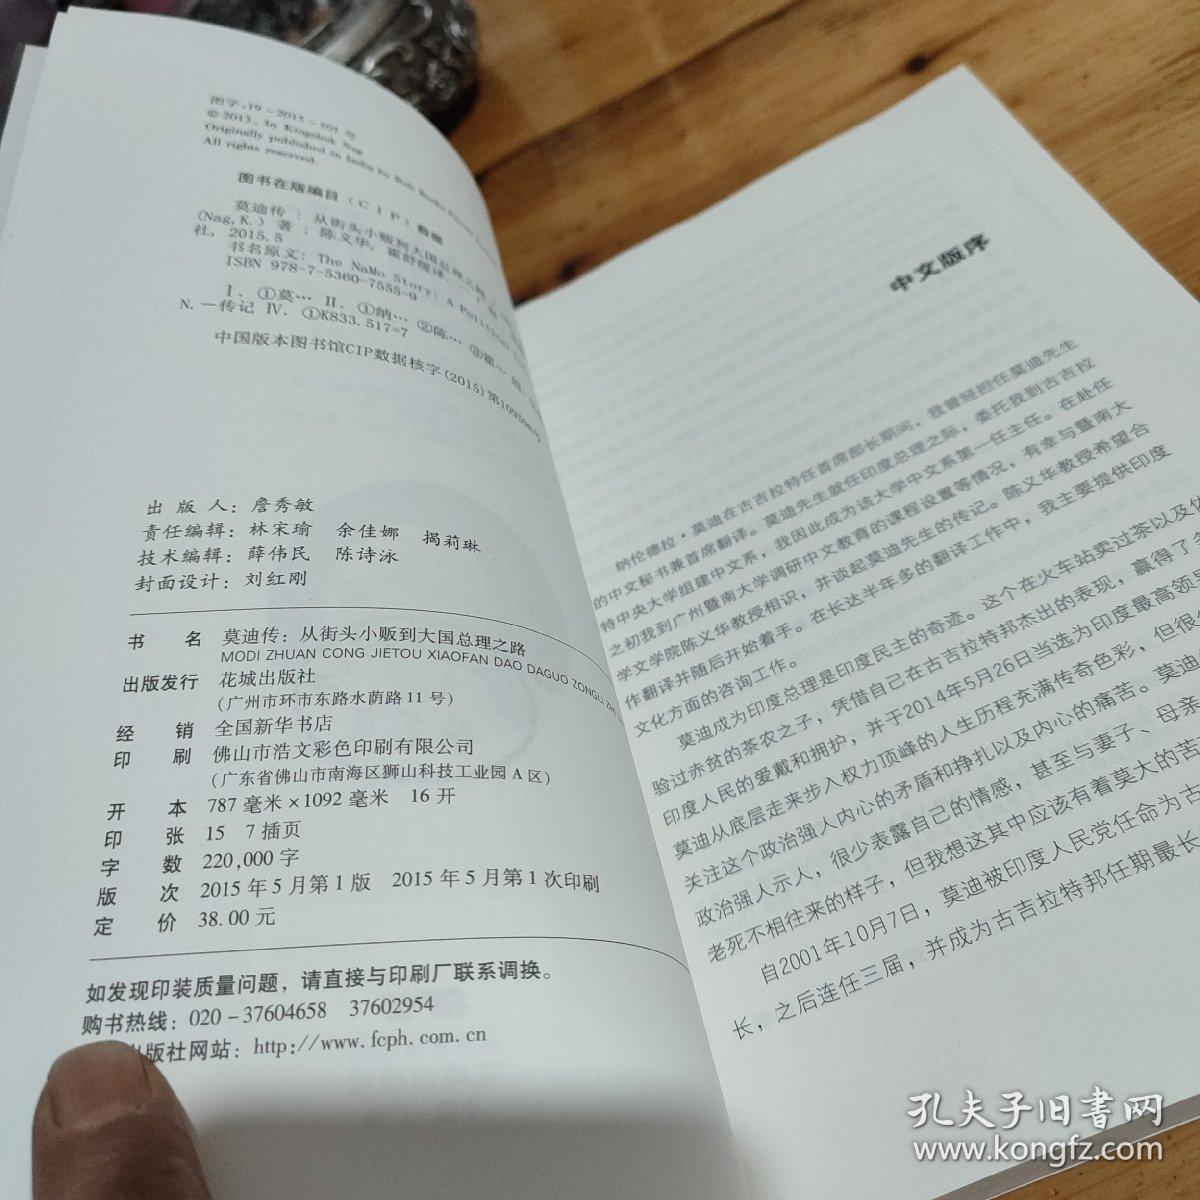 图字:19-2015-101 号
© 2013, by Kingshuk Nag
Originally published in India by Roli Books
All rights reserved.
图书在版编目(CIP)数据
莫迪传 : 从街头小贩到大国总理之路
(Nag, K.) 著 ; 陈义华, 霍舒缓译.
社, 2015.5
书名原文: The NaMo Story: A Political
ISBN 978-7-5360-7555-9
Ⅰ. ①莫… Ⅱ. ①纳… ②陈… ③霍…
N. —传记 Ⅳ. ①K833.517=7
中国版本图书馆CIP数据核字(2015)第109598号
出 版 人: 詹秀敏
责任编辑: 林宋瑜 余佳娜 揭莉琳
技术编辑: 薛伟民 陈诗泳
封面设计: 刘红刚
书 名 莫迪传: 从街头小贩到大国总理之路
MODI ZHUAN CONG JIETOU XIAOFAN DAO DAGUO ZONGLI ZHI
出版发行 花城出版社
(广州市环市东路水荫路 11 号)
经 销 全国新华书店
印 刷 佛山市浩文彩色印刷有限公司
(广东省佛山市南海区狮山科技工业园 A 区)
开 本 787 毫米×1092 毫米 16 开
印 张 15 7 插页
字 数 220,000 字
版 次 2015 年 5 月第 1 版 2015 年 5 月第 1 次印刷
定 价 38.00 元
如发现印装质量问题, 请直接与印刷厂联系调换。
购书热线: 020-37604658 37602954
出版社网站: http://www.fcph.com.cn
中文版序
纳伦德拉·莫迪在古吉拉特任首席部长期间, 我曾经担任莫迪先生
的中文秘书兼首席翻译。莫迪先生就任印度总理之际, 委托我到古吉拉
特中央大学组建中文系, 我因此成为该大学中文系第一任主任。在赴任
之初我到广州暨南大学调研中文教育的课程设置等情况, 有幸与暨南大
学文学院陈义华教授相识, 并谈起莫迪先生的传记。陈义华教授希望合
作翻译并随后开始着手。在长达半年多的翻译工作中, 我主要提供印度
文化方面的咨询工作。
莫迪成为印度总理是印度民主的奇迹。这个在火车站卖过茶以及体
验过赤贫的茶农之子, 凭借自己在古吉拉特邦杰出的表现, 赢得了
印度人民的爱戴和拥护, 并于2014年5月26日当选为印度最高领导
莫迪从底层走来步入权力顶峰的人生历程充满传奇色彩, 但很
关注这个政治强人内心的矛盾和挣扎以及内心的痛苦。莫迪
政治强人示人, 很少表露自己的情感, 甚至与妻子、母亲
老死不相往来的样子, 但我想这其中应该有着莫大的苦
自2001年10月7日, 莫迪被印度人民党任命为古
长, 之后连任三届, 并成为古吉拉特邦任期最长
孔夫子旧书网
www.kongfz.com